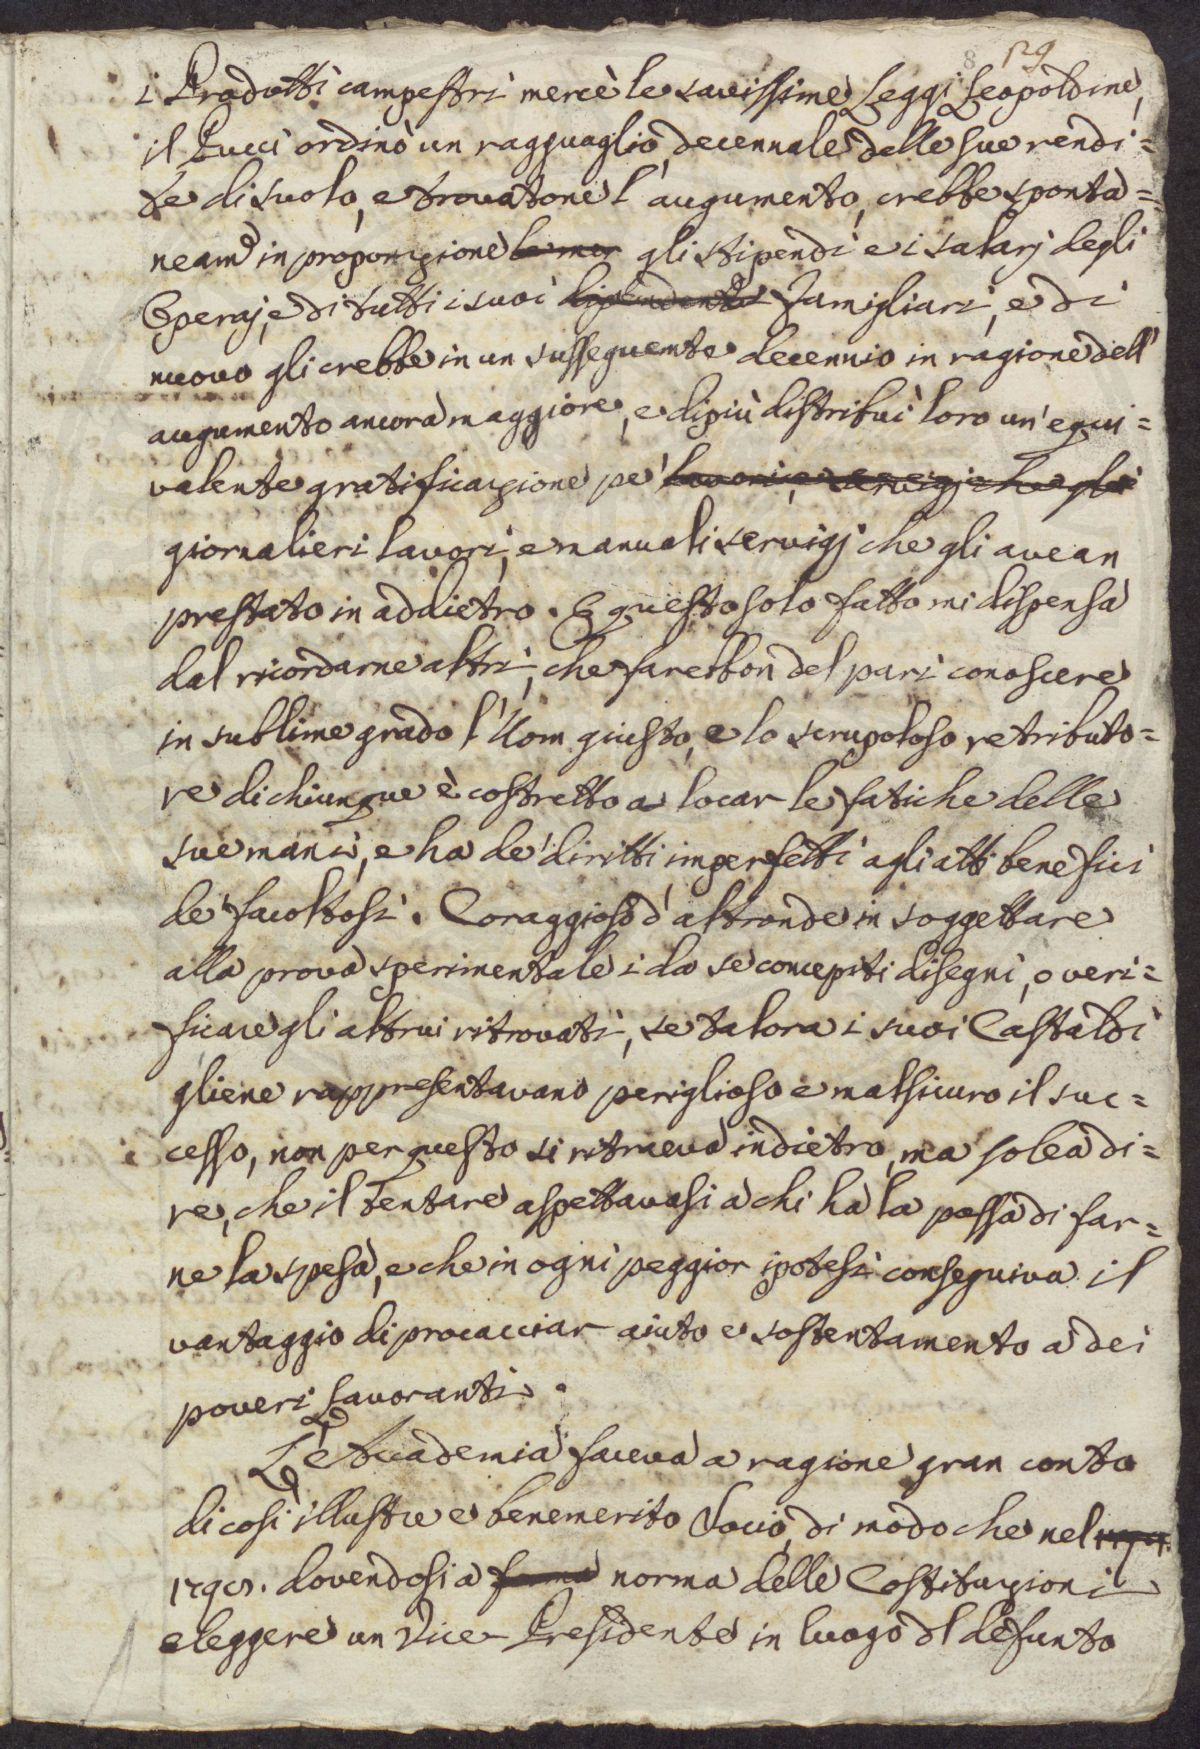 8 129
i Prodotti campestri mercè le savissime Leggi Leopoldine,
il Pucci ordinò un ragguaglio decennale delle sue rendi=
te di suolo, e trovatone l'augumento, crebbe sponta=
neam.e in proporzione gli stipendi e i salarj degli
Operaj, e di tutti i suoi dipendenti famigliari, e di
nuovo gli crebbe in un susseguente decennio in ragione dell'
augumento ancora maggiore, e dipiù distribuì loro un'equi=
valente gratificazione pe' lavori, e servigj che gli
giornalieri lavori, e manuali servigj che gli avean
prestato in addietro. E questo solo fatto mi dispensa
dal ricordarne altri, che farebbon del pari conoscere
in sublime grado l'Uom giusto, e lo scrupoloso retributo=
re di chiunque è costretto a locar le fatiche delle
sue mani, e ha de' diritti imperfetti agli atti benefici
de' facoltosi. Coraggioso d'altronde in soggettare
alla prova sperimentale i da se concepiti disegni, o veri=
ficare gli altrui ritrovati, se talora i suoi Castaldi
gliene rappresentavano periglioso e malsicuro il suc=
cesso, non per questo si ritraeva indietro, ma solea di=
re, che il tentare aspettavasi a chi ha la possa di far=
ne la spesa, e che in ogni peggior ipotesi conseguiva il
vantaggio di procacciar aiuto e sostentamento a dei
poveri Lavoranti.
L'Accademia faceva a ragione gran conto
di così illustre e benemerito Socio, di modo che nel
dovendosi a forma norma delle Costituzioni
eleggere un Vice-Presidente in luogo del defunto